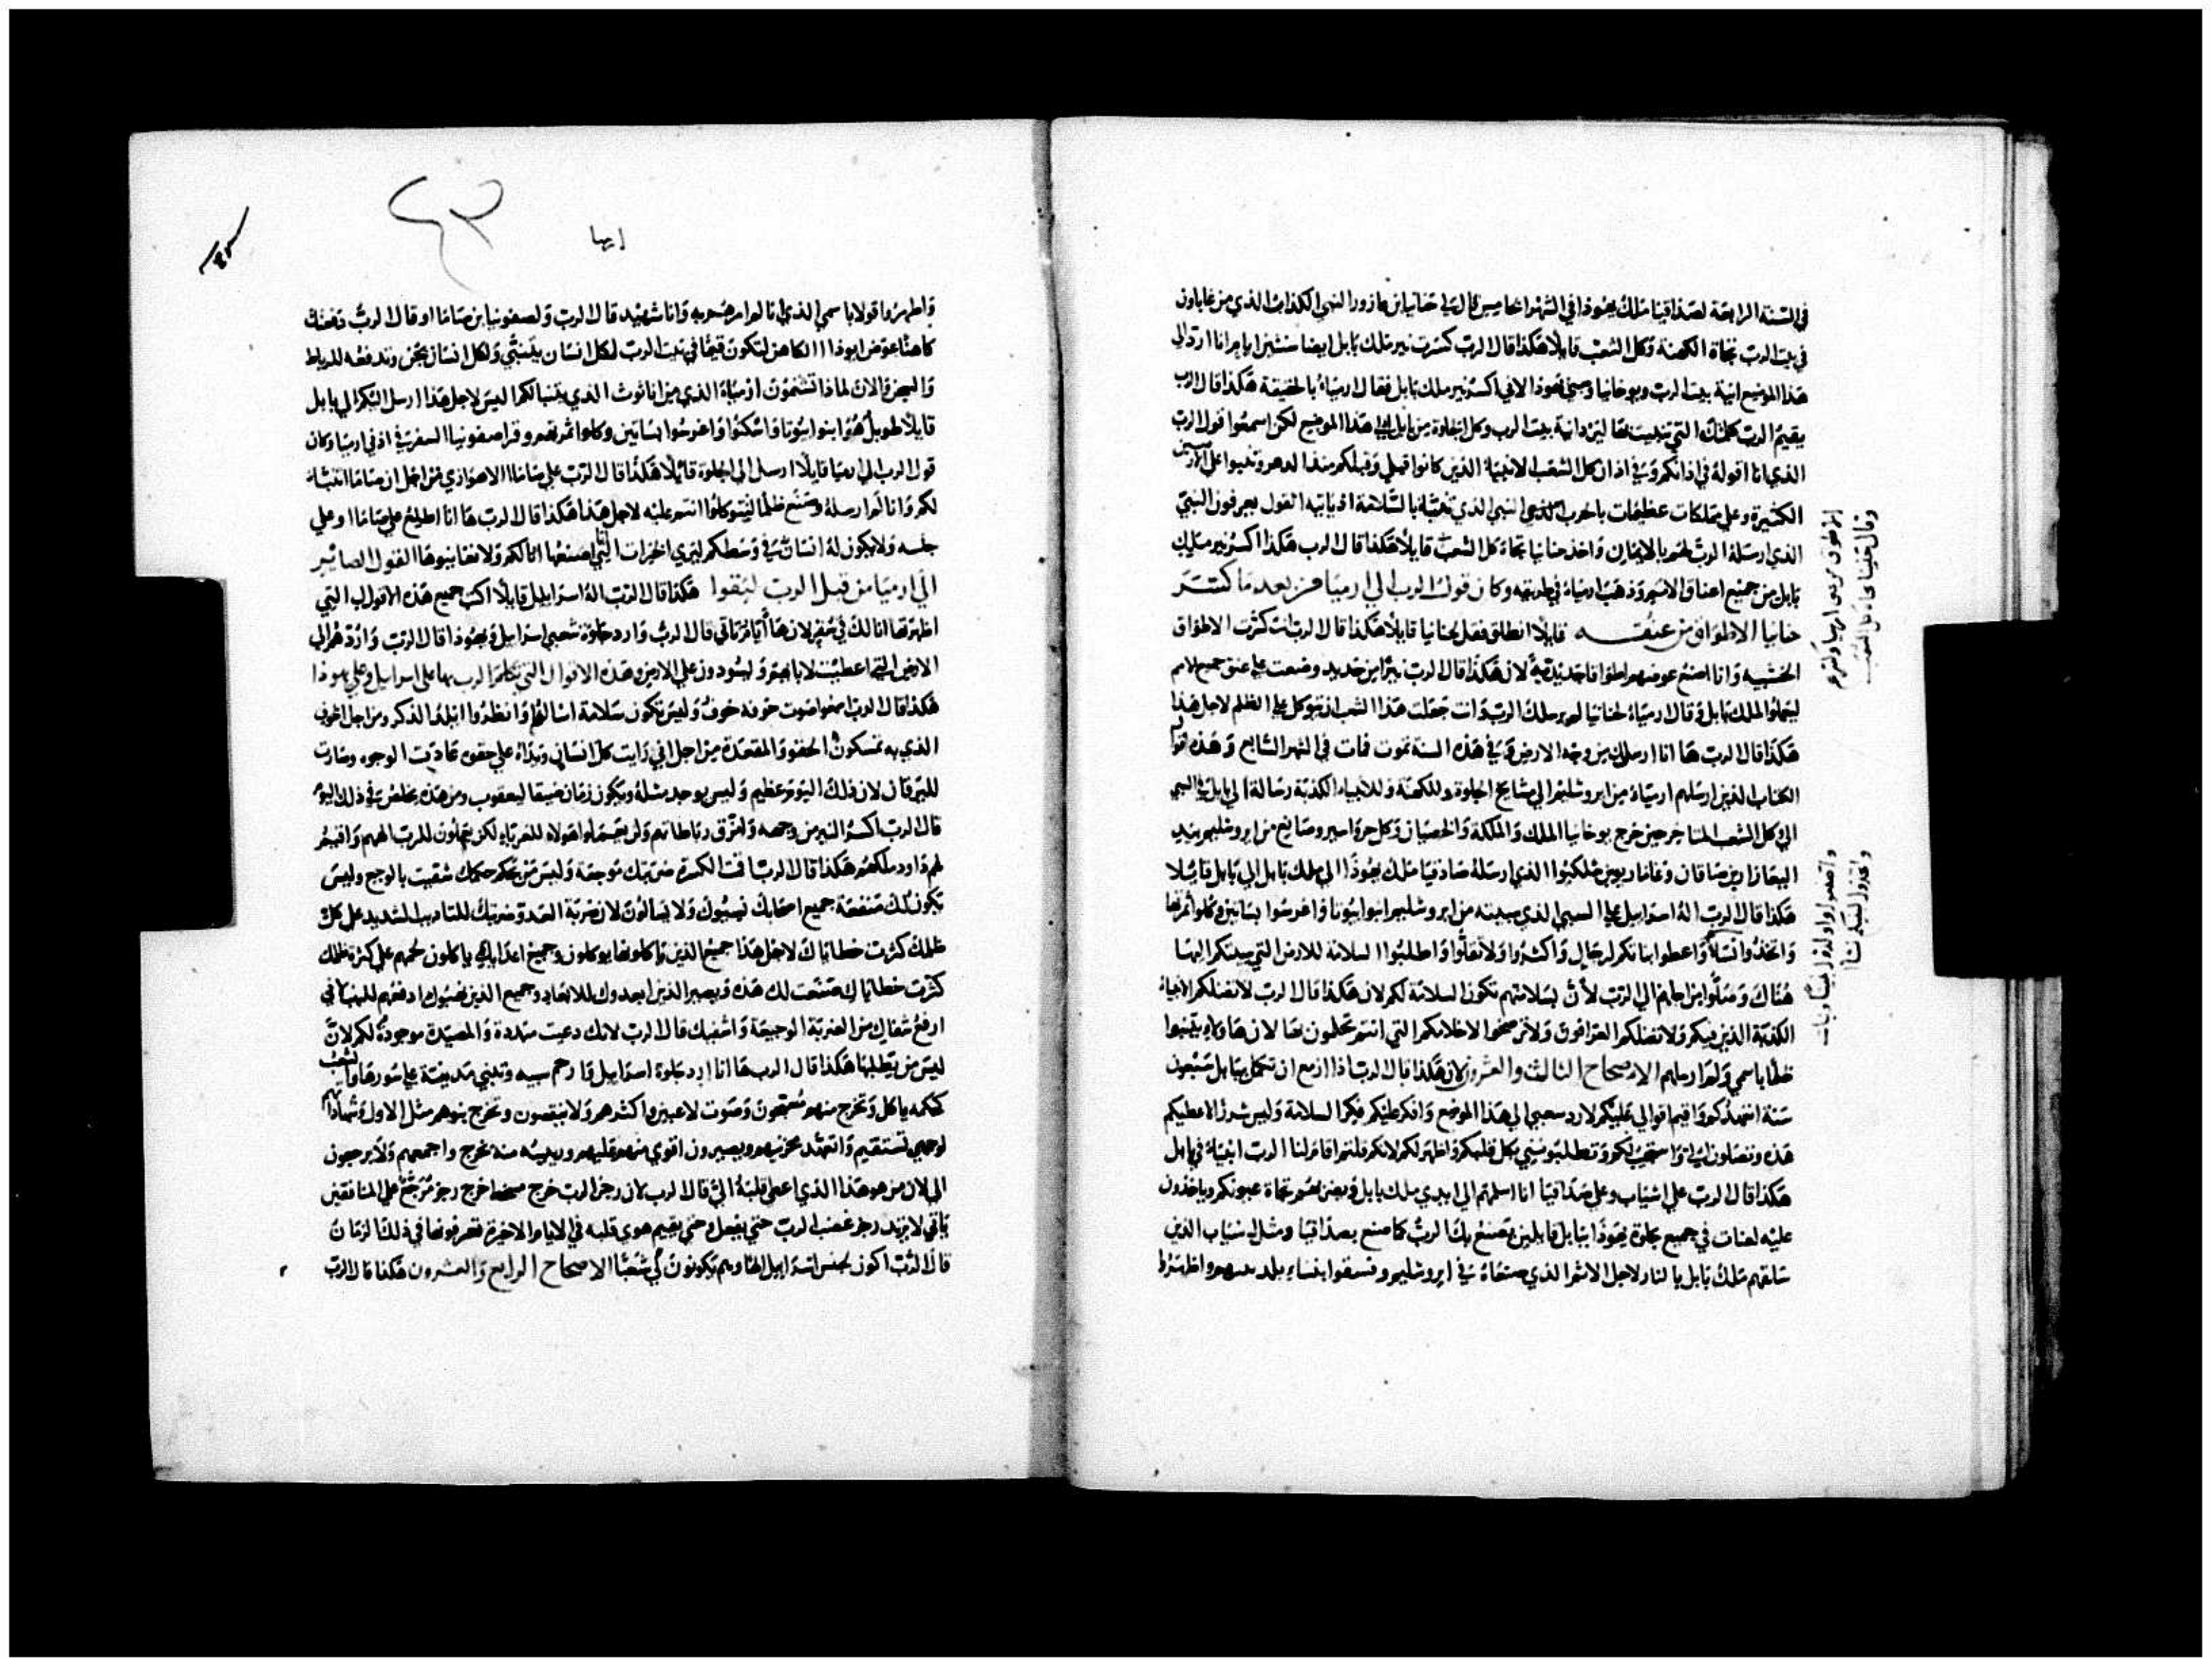 في السنة الرابعة لصداقيا ملك يهوذا في الشهر الخامس قال لي حنانيا ابن عازورا النبي الكذاب الذي من غاباون
في بيت الرب تجاة الكهنة وكل الشعب قايلا هكذا قال الرب كسرت نير ملك بابل ايضا سنتين ايام انا ارد الي
هذا الموضع انية بيت الرب ويوخانيا وسبي يهوذا لاني اكسر نير ملك بابل فقال ارمياء بالحقيقة هكذا قال الرب
يقيم الرب كلمتك التي تنبيت بها ليرد انية بيت الرب وكل الجلوة من بابل الي هذا الموضع لكن اسمعوا قول الرب
الذي انا اقوله في اذانكم وفي اذان كل الشعب الانبياء الذين كانوا قبلي وقبلكم منذ الدهر وتنبوا علي الارض
الكثيرة وعلي مملكات عظيمات باحرب النبي الذي تنبا بالسلامة اذ ياتيه القول يعرفون النبي
الذي ارسله الرب لهم بالايمان واخذ حنانيا تجاة كل الشعب قايلا هكذا قال الرب هكذا اكسر نير ملك
بابل من جميع اعناق الامم وذهب ارمياء في طريقه وكان قول الرب الي ارميا من بعد ما كسر
حنانيا الاطواق من عنقه قايلا انطلق فقل لحنانيا قايلا هكذا قال الرب انت كسرت الاطواق
الخشبيه وانا اصنع عوضهم اطواقا حديدية لان هكذا قال الرب نيرا من حديد وضعت علي عنق جميع الامم
ليعملوا لملك بابل وقال ارمياء لحنانيا لم يرسلك الرب وانت جعلت هذا الشعب ان يتوكل علي الظلم لاجل هذا
هكذا قال الرب ها انا ارسلك من وجه الارض وفي هذه السنة تموت فمات في الشهر السابع وهذه اقوال
الكتاب الذين ارسلهم ارمياء من ايروشليم الي مشايخ الجلوة وللكهنة وللانبياء الكذبة رسالة الي بابل في السبي
الي كل الشعب المتاخر حين خرج يوخانيا الملك والملكة والخصيان وكل حر واسير وصانع من ايروشليم بيد
اليعازار بن صاقان وغامار بن ملكيوا الذي ارسله صادقيا ملك يهوذا الي ملك بابل الي بابل قايلا
هكذا قال الرب اله اسرايل علي السبي الذي سبيته من ايروشليم ابنوا بيوتا واغرسوا بساتين وكلوا ثمرتها
واتخذوا نسا واعطوا بناتكم لرجال واكثروا ولا تقلوا واطلبوا السلامة للارض التي سبيتكم اليها
هناك وصلوا من اجلهم الي الرب لان بسلامتهم تكون السلامة لكم لان هكذا قال الرب لا تضلكم الانبياء
الكذبة الذين فيكم ولا تضلكم العرافون ولا تصغوا لاحلامكم التي انتم تحلمون بها لان هاولاي يتنبوا
ظلما باسمي ولم ارسلهم الاصحاح الثالث والعشرون لان هكذا قال الرب اذا ازمع ان تكمل ببابل سبعون
سنة اتعهدكم واقيم اقوالي عليكم لارد شعبي الي هذا الموضع وافكر عليكم فكر السلامة وليس شرا لاعطيكم
هذه وتصلون الي واستجيب لكم وتطلبونني بكل قلبكم واظهر لكم لانكم قلتم اقام لنا الرب انبياء في بابل
هكذا قال الرب علي اشياب وعلي صداقيا انا اسلمهم الي ايدي ملك بابل ويضربهم تجاة عيونكم وياخذون
عليه لعنات في جميع جلوة يهوذا ببابل قايلين يصنع بك الرب كما صنع بصداقيا ومثل اشياب الذين
سلقهم ملك بابل بالنار لاجل الاثم الذي صنعاه في ايروشليم وفسقوا بنساء
وقال حنينا تجاه كل الشعب
الاطوق من عنق ارميا وكسرهم
واتخذوا لبنيكم نسا
ارميا
٤٣
واظهروا قولا باسمي الذي انا لم امرهم به وانا شهيد قال الرب ولصفونيا ابن صاماا وقال الرب دفعتك
كاهنا عوض ايوذاا الكاهن لتكون قيما في بيت الرب لكل انسان يتنبي ولكل انسان يجن وتدفعه للرباط
والسجن والان لماذا تشتمون ارمياء الذي من اناثوث الذي يتنبا لكم اليس لاجل هذا ارسل اليكم الي بابل
قايلا طويل هو ابنوا بيوتا واسكنوا واغرسوا بساتين وكلوا ثمرتهم وقرا صفونيا السفر في اذني ارميا وكان
قول الرب الي ارميا قايلا ارسل الي الجلوة قايلا هكذا قال الرب علي صاماا الاهوازي من اجل ان صاما تنبا
لكم وانا لم ارسله وصنع ظلما لتتوكلوا انتم عليه لاجل هذا هكذا قال الرب ها انا اطلع علي صاماا وعلي
جنسه ولا يكون له انسان في وسطكم ليري الخيرات التي اصنعها انا لكم ولا تعاينوها القول الصائر
الي ارميا من قبل الرب ليقوا هكذا قال الرب اله اسرايل قايلا اكتب جميع هذه الاقوال التي
اظهرتها انا لك في سفر لان ها ايام تاتي قال الرب وارد جلوة شعبي اسرايل ويهوذا قال الرب واردهم الي
الارض التي اعطيت لابايهم ويسودون علي الارض وهذه الاقوال التي تكلم الرب بها علي اسرايل وعلي يهوذا
هكذا قال الرب اسمعوا صوت خوفه خوف وليس تكون سلامة اسالوا وانظروا ايلد الذكر ومن اجل الخوف
الذي به تمسكون الحقو والمقعدة من اجل اني رايت كل انسان ويداه علي حقوه عادت الوجوه وصارت
لليرقان لان ذلك اليوم عظيم وليس يوجد مثله ويكون زمان ضيقا ليعقوب ومن هذه يخلص في ذلك اليوم
قال الرب اكسر النير من وجهه وامزق رباطاتهم ولن يعملوا هولاء للغرباء لكن يعملون للرب الههم واقيم
لهم داود ملكهم هكذا قال الرب اقمت الكسرة ضربتك موجعة وليس من يحكم حكمك شفيت بالوجع وليس
تكون لك منفعة جميع اصحابك نسيوك ولا يسالون لان ضربة العدو ضربتك للتاديب الشديد علي كل
ظلمك كثرت خطاياك لاجل هذا جميع الذين ياكلونها يوكلون وجميع اعدايك ياكلون لحمهم علي كثرة ظلمك
كثرت خطاياك صنعت لك هذه ويصير الذين ابعدوك للابعاد وجميع الذين نهبوك ادفعهم للنهب اني
ارفع شفاك من الضربة الوجيعة واشفيك قال الرب لانك دعيت مبددة والمصيدة موجودة لكم لان
ليس من يطلبها هكذا قال الرب ها انا ارد جلوة اسرايل وارحم سبيه وتبني مدينة علي سورها والشعب
كحكمه ياكل وتخرج منهم مسبحون وصوت لاعبين واكثرهم ولا ينقصون وتخرج بنوهم مثل الاول وشهاداتهم
لوجهي تستقيم واتعهد محزنيهم ويصيرون اقوي منهم عليهم ورييسه منه يخرج واجمعهم ولا يرجعون
الي لان من هو هذا الذي اعطي قلبه الي قال الرب لان رجز الرب خرج سخطا خرج رجز مرجع علي المنافقين
ياتي لا يرتد رجز غضب الرب حتي يفعل وحتي يقيم هوي قلبه في الايام الاخيرة تعرفونها في ذلك الزمان
قال الرب اكون لجنس اسرايل الها وهم يكونون لي شعبا الاصحاح الرابع والعشرون هكذا قال الرب